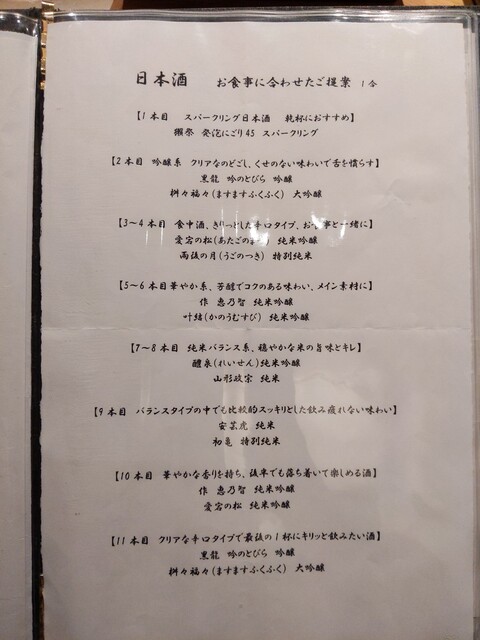 日本酒 お食事に合わせたご提案 1合
【1本目 スパークリング日本酒 乾杯におすすめ】
獺祭 発泡にごり45 スパークリング
【2本目 吟醸系 クリアなのどごし、くせのない味わいで舌を慣らす】
黒龍 吟のとびら 吟醸
桝々福々(ますますふくふく) 大吟醸
【3〜4本目 食中酒、きりっとした辛口タイプ、お食事と一緒に】
愛宕の松(あたごのまつ) 純米吟醸
雨後の月(うごのつき) 特別純米
【5〜6本目 華やか系、芳醇でコクのある味わい、メイン素材に】
作 恵乃智 純米吟醸
叶結(かのうむすび) 純米吟醸
【7〜8本目 純米バランス系、穏やかな米の旨味とキレ】
醴泉(れいせん)純米吟醸
山形政宗 純米
【9本目 バランスタイプの中でも比較的スッキリとした飲み疲れない味わい】
安芸虎 純米
初亀 特別純米
【10本目 華やかな香りを持ち、後半でも落ち着いて楽しめる酒】
作 恵乃智 純米吟醸
愛宕の松 純米吟醸
【11本目 クリアな辛口タイプで最後の1杯にキリッと飲みたい酒】
黒龍 吟のとびら 吟醸
桝々福々(ますますふくふく) 大吟醸